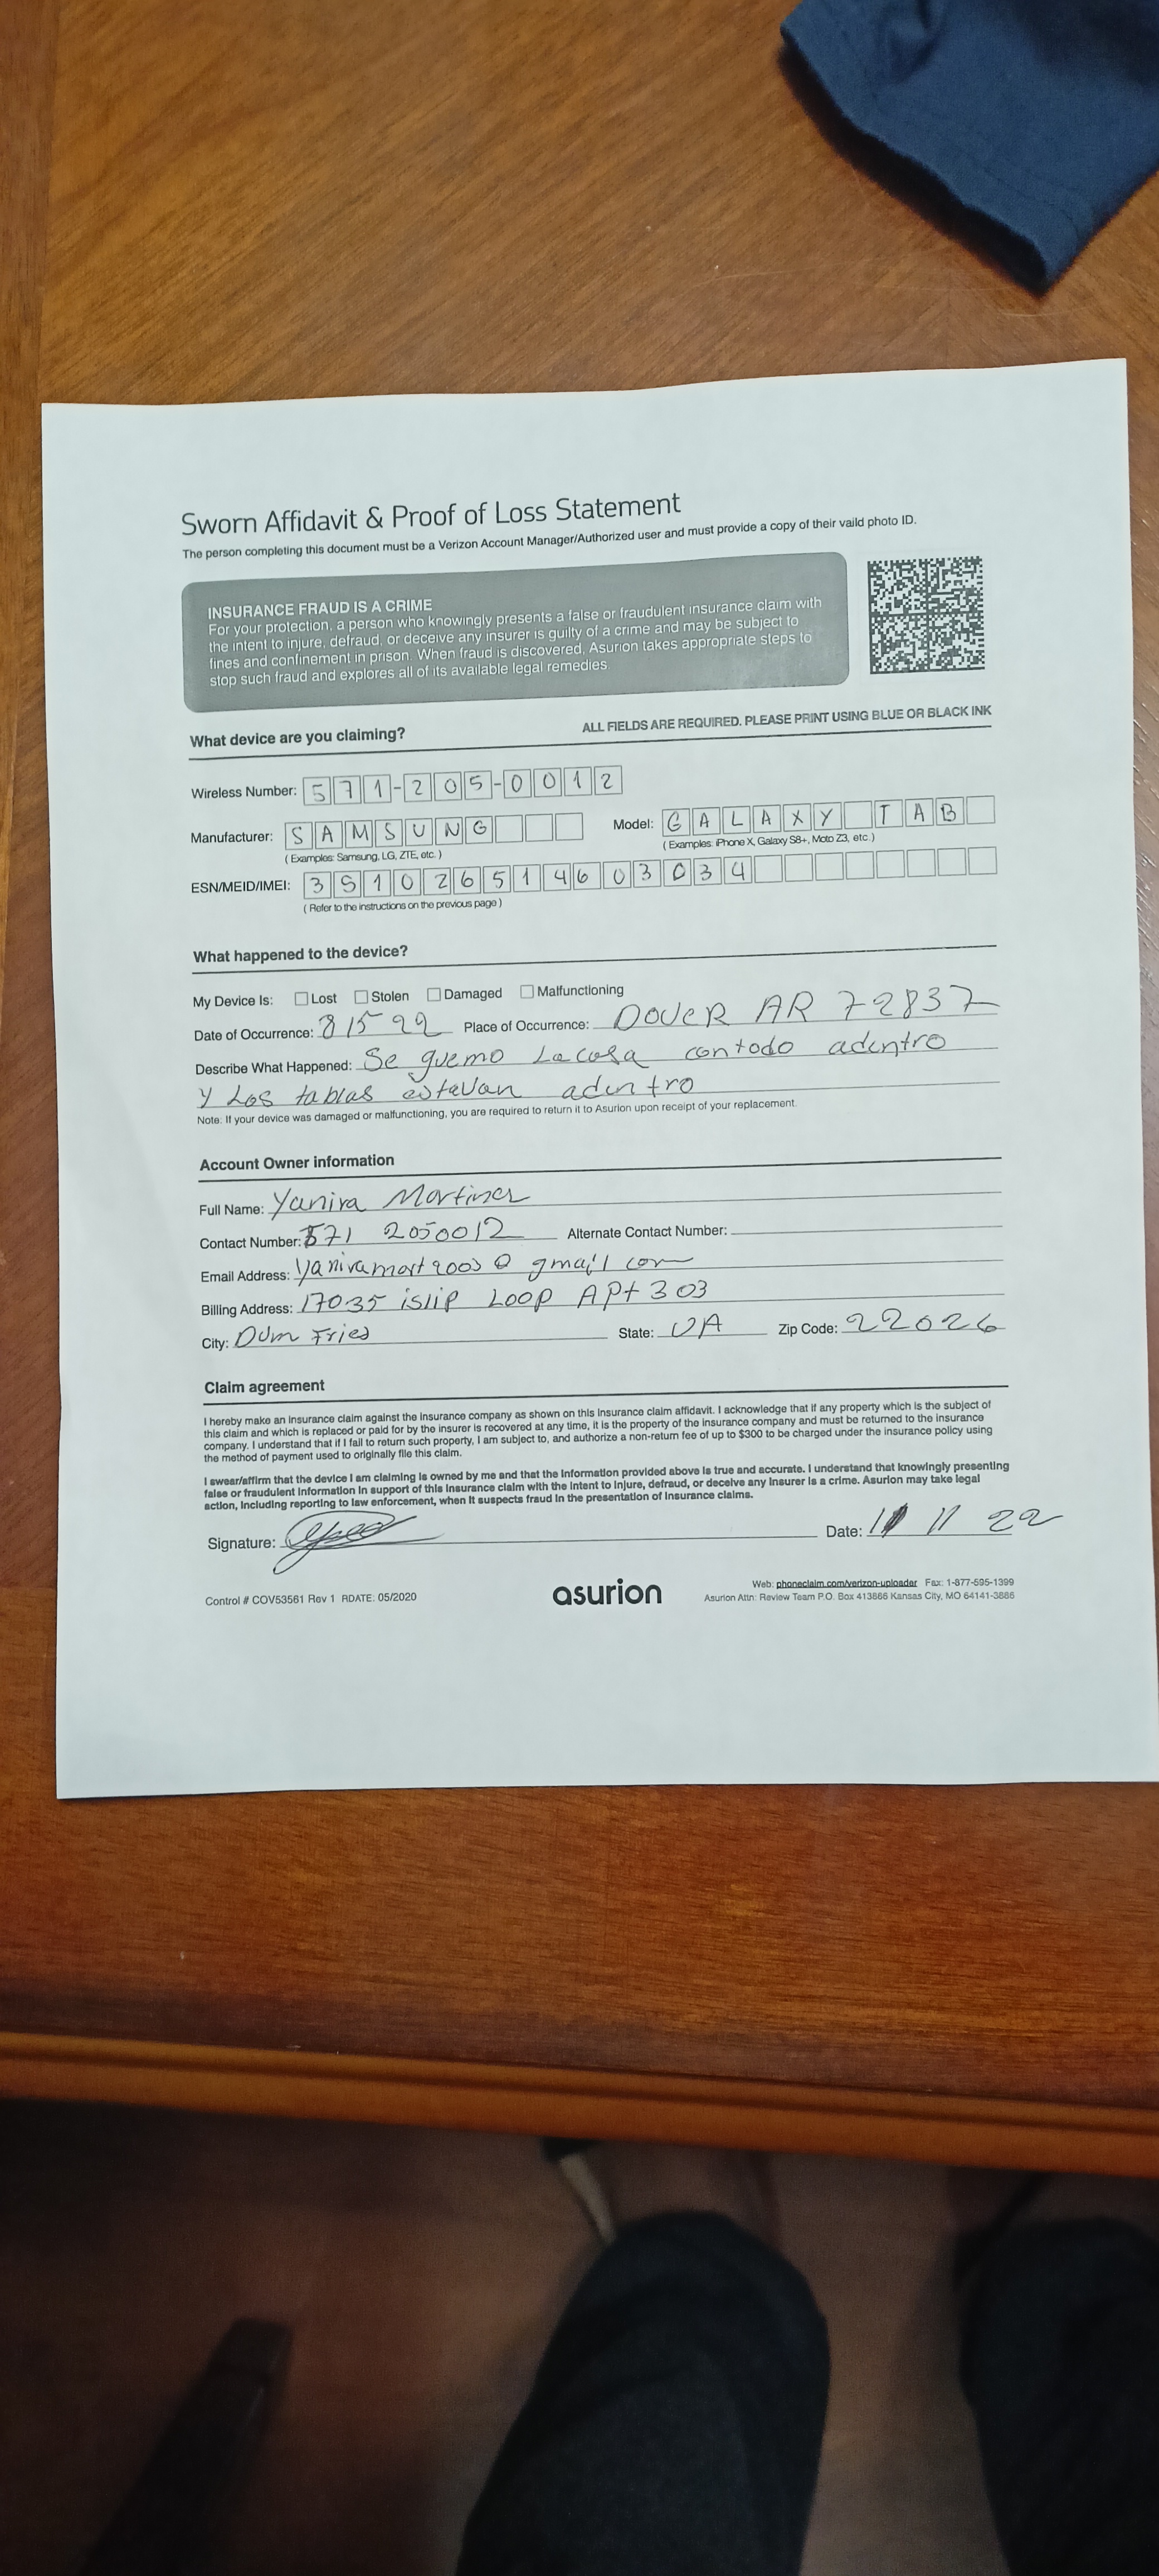 Sworn Affidavit & Proof of Loss Statement
The person completing this document must be a Verizon Account Manager/Authorized user and must provide a copy of their vaild photo ID.
INSURANCE FRAUD IS A CRIME
For your protection, a person who knowingly presents a false or fraudulent insurance claim with
the intent to injure, defraud, or deceive any insurer is guilty of a crime and may be subject to
fines and confinement in prison. When fraud is discovered, Asurion takes appropriate steps to
stop such fraud and explores all of its available legal remedies.
What device are you claiming? ALL FIELDS ARE REQUIRED. PLEASE PRINT USING BLUE OR BLACK INK
Wireless Number: 571-205-0012
Manufacturer: SAMSUNG Model: GALAXY TAB
(Examples: Samsung, LG, ZTE, etc.) (Examples: iPhone X, Galaxy S8+, Moto Z3, etc.)
ESN/MEID/IMEI: 351026514603034
(Refer to the instructions on the previous page)
What happened to the device?
My Device Is: Lost Stolen Damaged Malfunctioning
Date of Occurrence: 8 15 22 Place of Occurrence: DOVER AR 72837
Describe What Happened: Se quemo La casa con todo adentro
y Los tablas estavan adentro
Note: If your device was damaged or malfunctioning, you are required to return it to Asurion upon receipt of your replacement.
Account Owner information
Full Name: Yanira Martinez
Contact Number: 571 2050012 Alternate Contact Number:
Email Address: yaniramart2003@gmail com
Billing Address: 17035 islip LOOP APt 303
City: DUm Fries State: VA Zip Code: 22026
Claim agreement
I hereby make an insurance claim against the insurance company as shown on this insurance claim affidavit. I acknowledge that if any property which is the subject of
this claim and which is replaced or paid for by the insurer is recovered at any time, it is the property of the insurance company and must be returned to the insurance
company. I understand that if I fail to return such property, I am subject to, and authorize a non-return fee of up to $300 to be charged under the insurance policy using
the method of payment used to originally file this claim.
I swear/affirm that the device I am claiming is owned by me and that the information provided above is true and accurate. I understand that knowingly presenting
false or fraudulent information in support of this insurance claim with the intent to injure, defraud, or deceive any insurer is a crime. Asurion may take legal
action, including reporting to law enforcement, when it suspects fraud in the presentation of insurance claims.
Signature: Date: 11 22
Control # COV53561 Rev 1 RDATE: 05/2020 asurion Web: phoneclaim.com/verizon-uploader Fax: 1-877-595-1399
Asurion Attn: Review Team P.O. Box 413886 Kansas City, MO 64141-3886